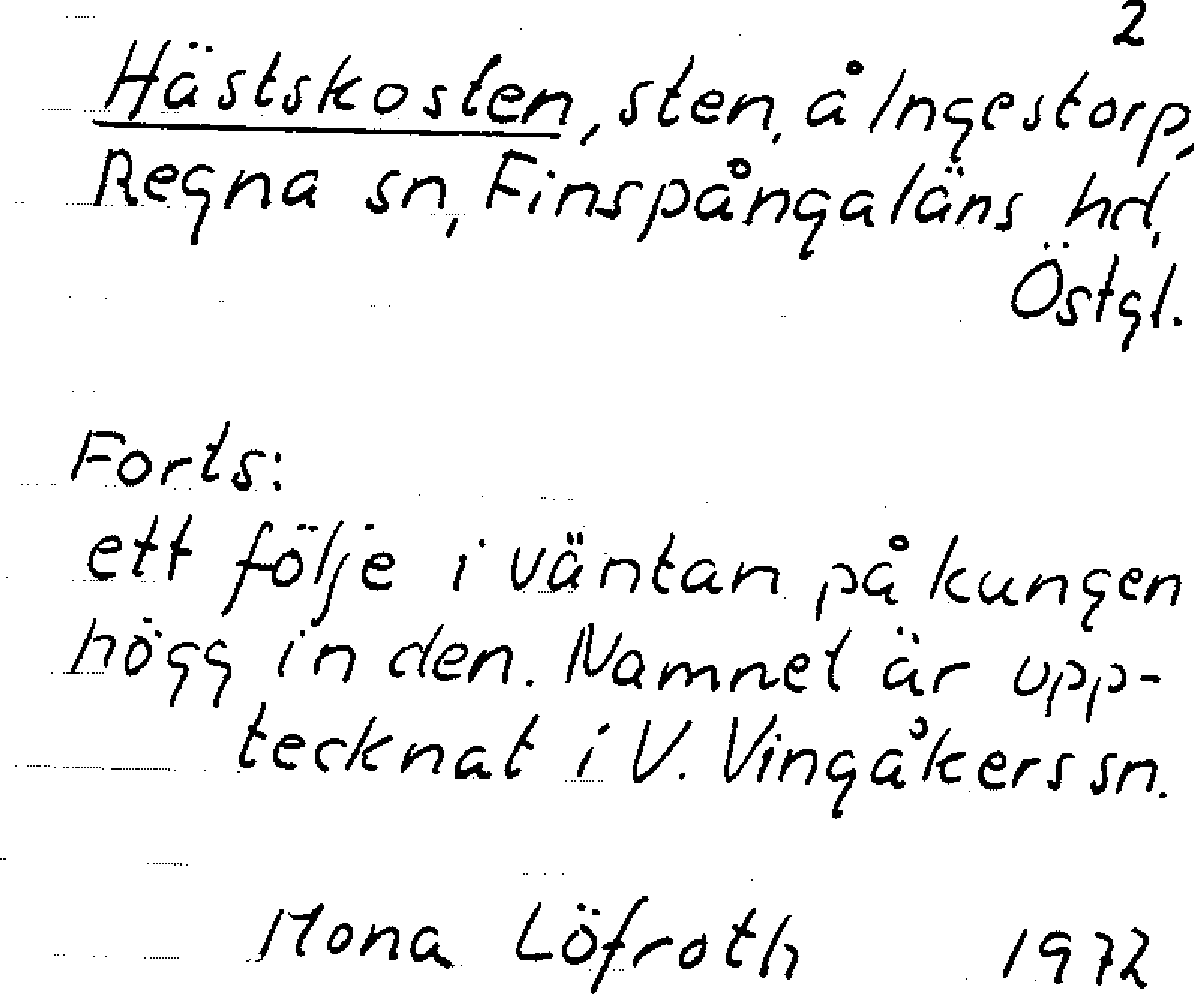 2
Hästskosten, sten, å Ingestorp,
Regna sn, Finspångaläns hd,
Östgl.
Forts:
ett följe i väntan på kungen
högg in den. Namnet är upp-
tecknat i V. Vingåkers sn.
Mona Löfroth 1972